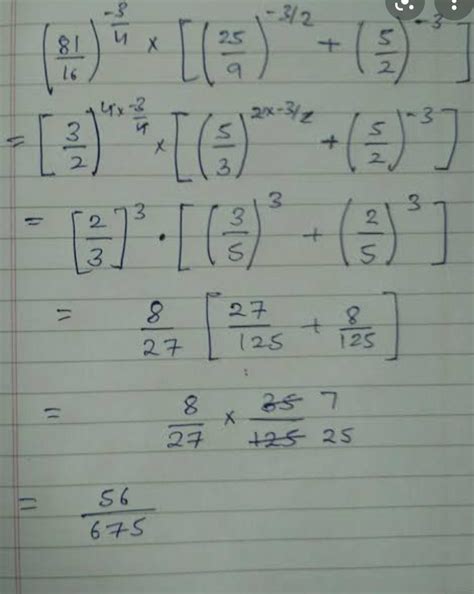 (81/16)^(-3/4) × [(25/9)^(-3/2) + (5/2)^(-3)]
= [3/2]^(4×-3/4) × [(5/3)^(2×-3/2) + (5/2)^(-3)]
= [2/3]^3 · [(3/5)^3 + (2/5)^3]
= 8/27 [27/125 + 8/125]
= 8/27 × 35/125 7/25
= 56/675